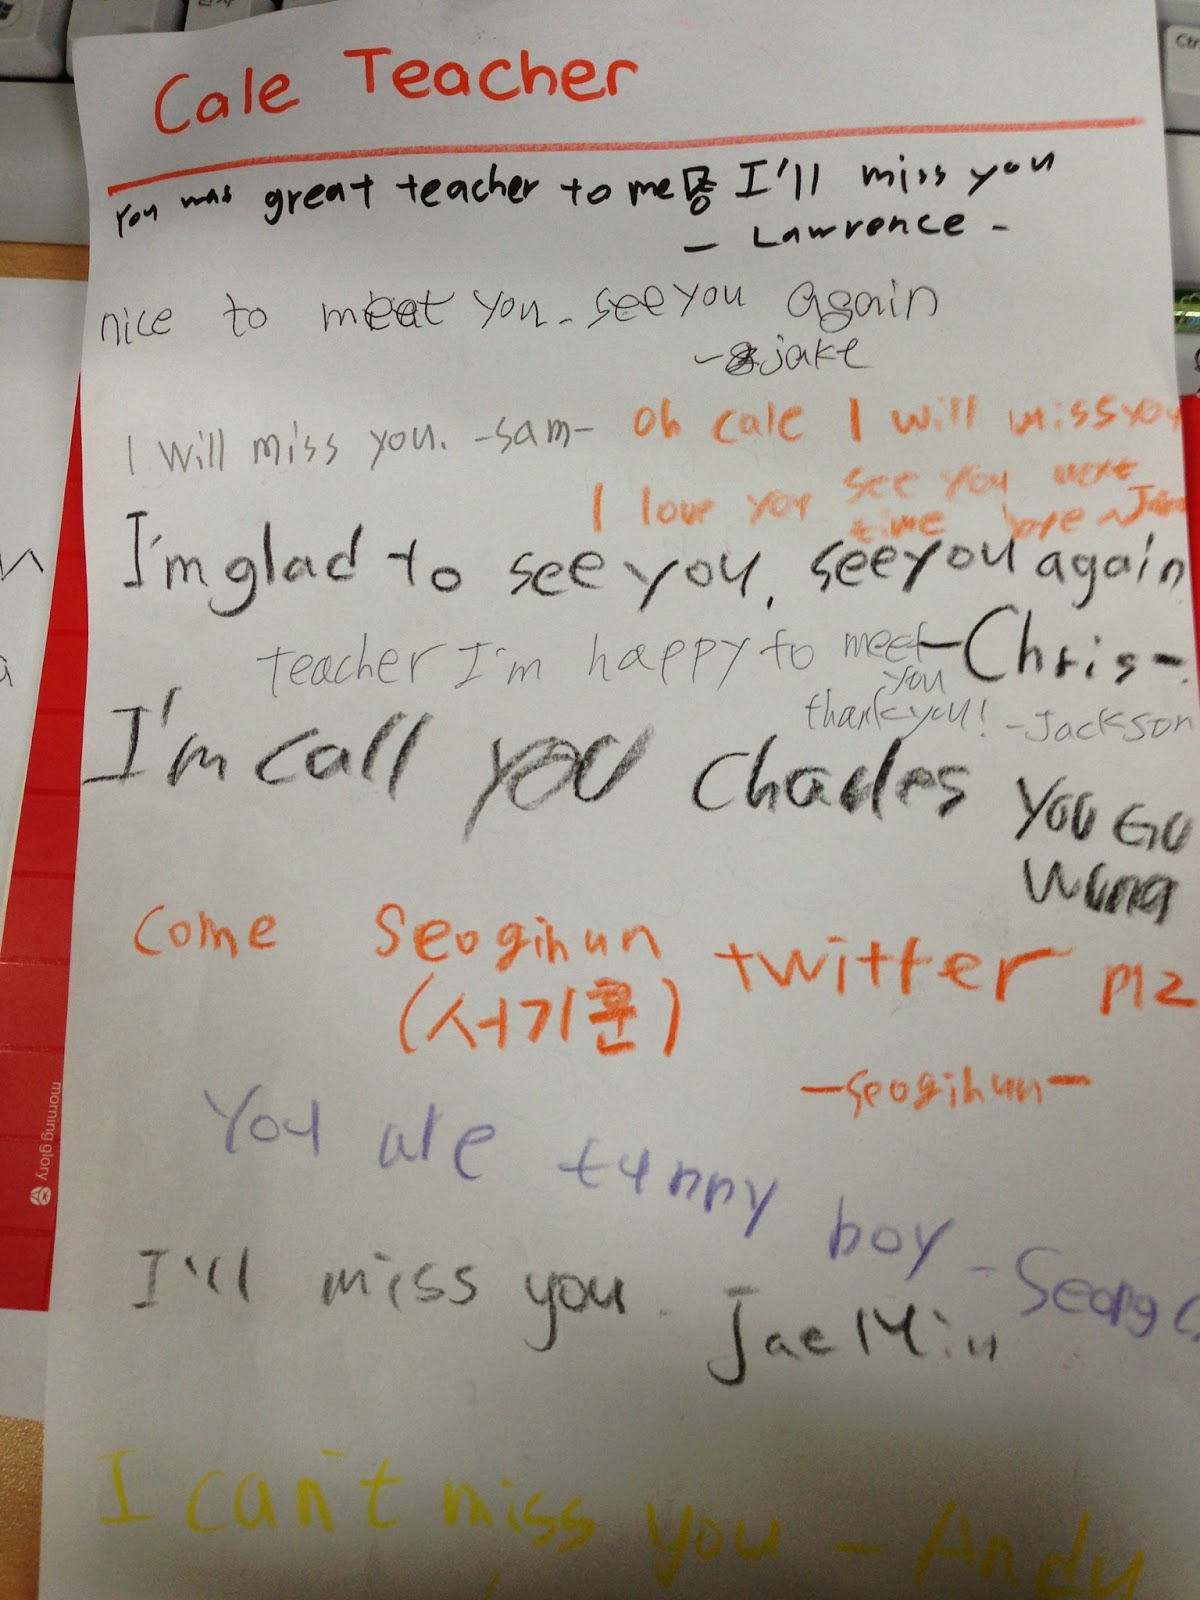 Cale Teacher
You was great teacher to me I'll miss you
- Lawrence -
nice to meet you. see you again
- jake
I will miss you. -sam-
Oh cale I will miss you
I love you see you next time bye ~
I'm glad to see you, see you again
-Chris-
teacher I'm happy to meet you
thank you! -Jackson
I'm call you Charles
YOO GU WUNG
come Seogihun twitter plz
(서기훈)
-seogihun-
You are funny boy -Seong
I'll miss you. JaeMin
I can't miss you - Andy
morning glory